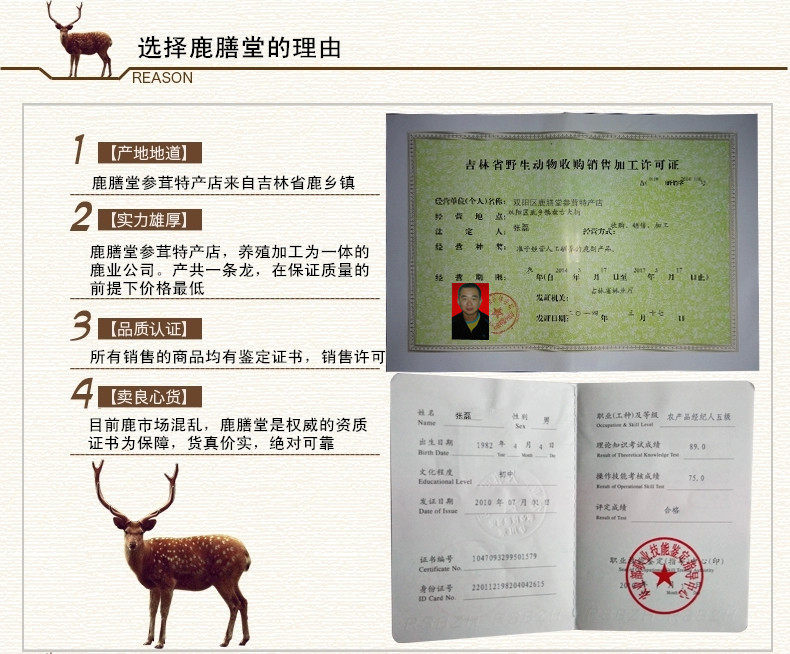 选择鹿膳堂的理由
REASON
1
【产地地道】
鹿膳堂参茸特产店来自吉林省鹿乡镇
2
【实力雄厚】
鹿膳堂参茸特产店，养殖加工为一体的
鹿业公司。产共一条龙，在保证质量的
前提下价格最低
3
【品质认证】
所有销售的商品均有鉴定证书，销售许可
4
【卖良心货】
目前鹿市场混乱，鹿膳堂是权威的资质
证书为保障，货真价实，绝对可靠
吉林省野生动物收购销售加工许可证
经营单位(个人)名称: 双阳区鹿膳堂参茸特产店
经营地点:
法定人: 张磊 经营方式: 收购、销售、加工
经营种类: 准予经营人工驯养的鹿副产品。
经营期限: 叁 年(自 2014 年 3 月 17 日至 2017 年 3 月 17 日止)
发证机关: 吉林省林业厅
发证日期: 二〇一四 年 三 月 十七 日
姓名 张磊 性别 男
Name Sex
出生日期 1982 年 4 月 4 日
Birth Date Year Month Day
文化程度 初中
Educational Level
发证日期 2010 年 07 月 01 日
Date of Issue
证书编号 1047093299501579
Certificate No.
身份证号 220112198204042615
ID Card No.
职业(工种)及等级 农产品经纪人五级
Occupation & Skill Level
理论知识考试成绩 89.0
Result of Theoretical Knowledge Test
操作技能考核成绩 75.0
Result of Operational Skill Test
评定成绩 合格
Result of Test